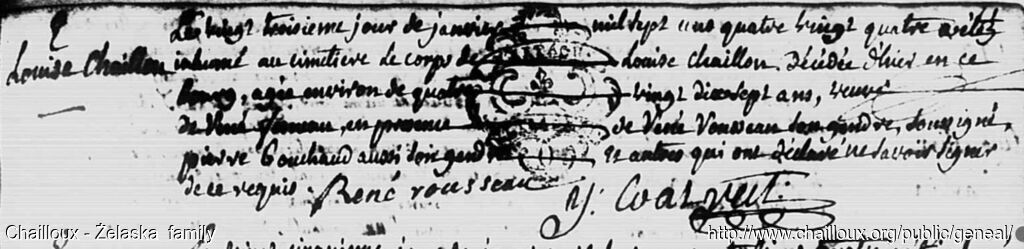 Le vingt troisieme jour de janvier mil sept cens quatre vingt quatre a été
Louise Chaillou inhumé au cimetiere le corps de Louise Chaillou. Décédée d'hier en ce
bourg, agée environ de quatre vingt dix sept ans, veuve
de René en presence de René Rousseau son gendre, soussigné,
pierre Bouchaud aussi son gendre et autres qui ont déclaré ne savoir signer
de ce requis. René rousseau
Chailloux - Żelaska family
http://www.chailloux.org/public/geneal/